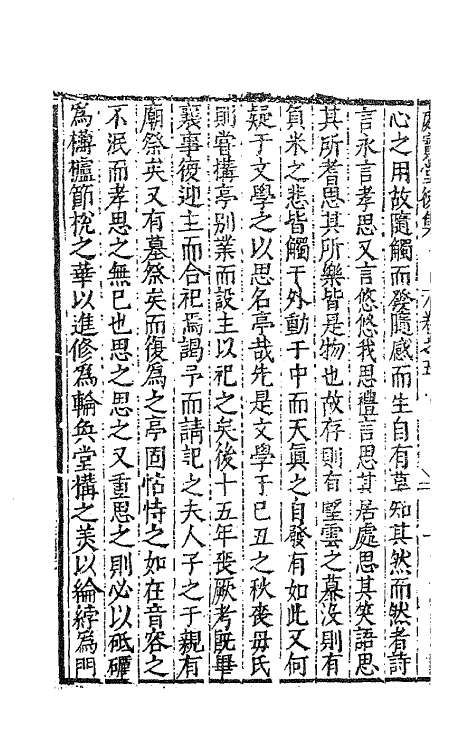 心之用故隨觸而發隨感而生自有莫知其然而然者詩
言永言孝思又言悠悠我思禮言思其居處思其笑語思
其所耆思其所樂皆是物也故存則有望雲之慕没則有
負米之悲皆觸于外動于中而天真之自發有如此又何
疑于文學之以思名亭哉先是文學于己丑之秋喪母氏
則嘗搆亭别業而設主以祀之矣後十五年喪厥考既畢
襄事復迎主而合祀焉謁予而請記之夫人子之于親有
廟祭矣又有墓祭矣而復為之亭固怙恃之如在音容之
不泯而孝思之無已也思之思之又重思之則必以砥礪
為欂櫨節梲之華以進修為輪奐堂構之美以綸綍為門